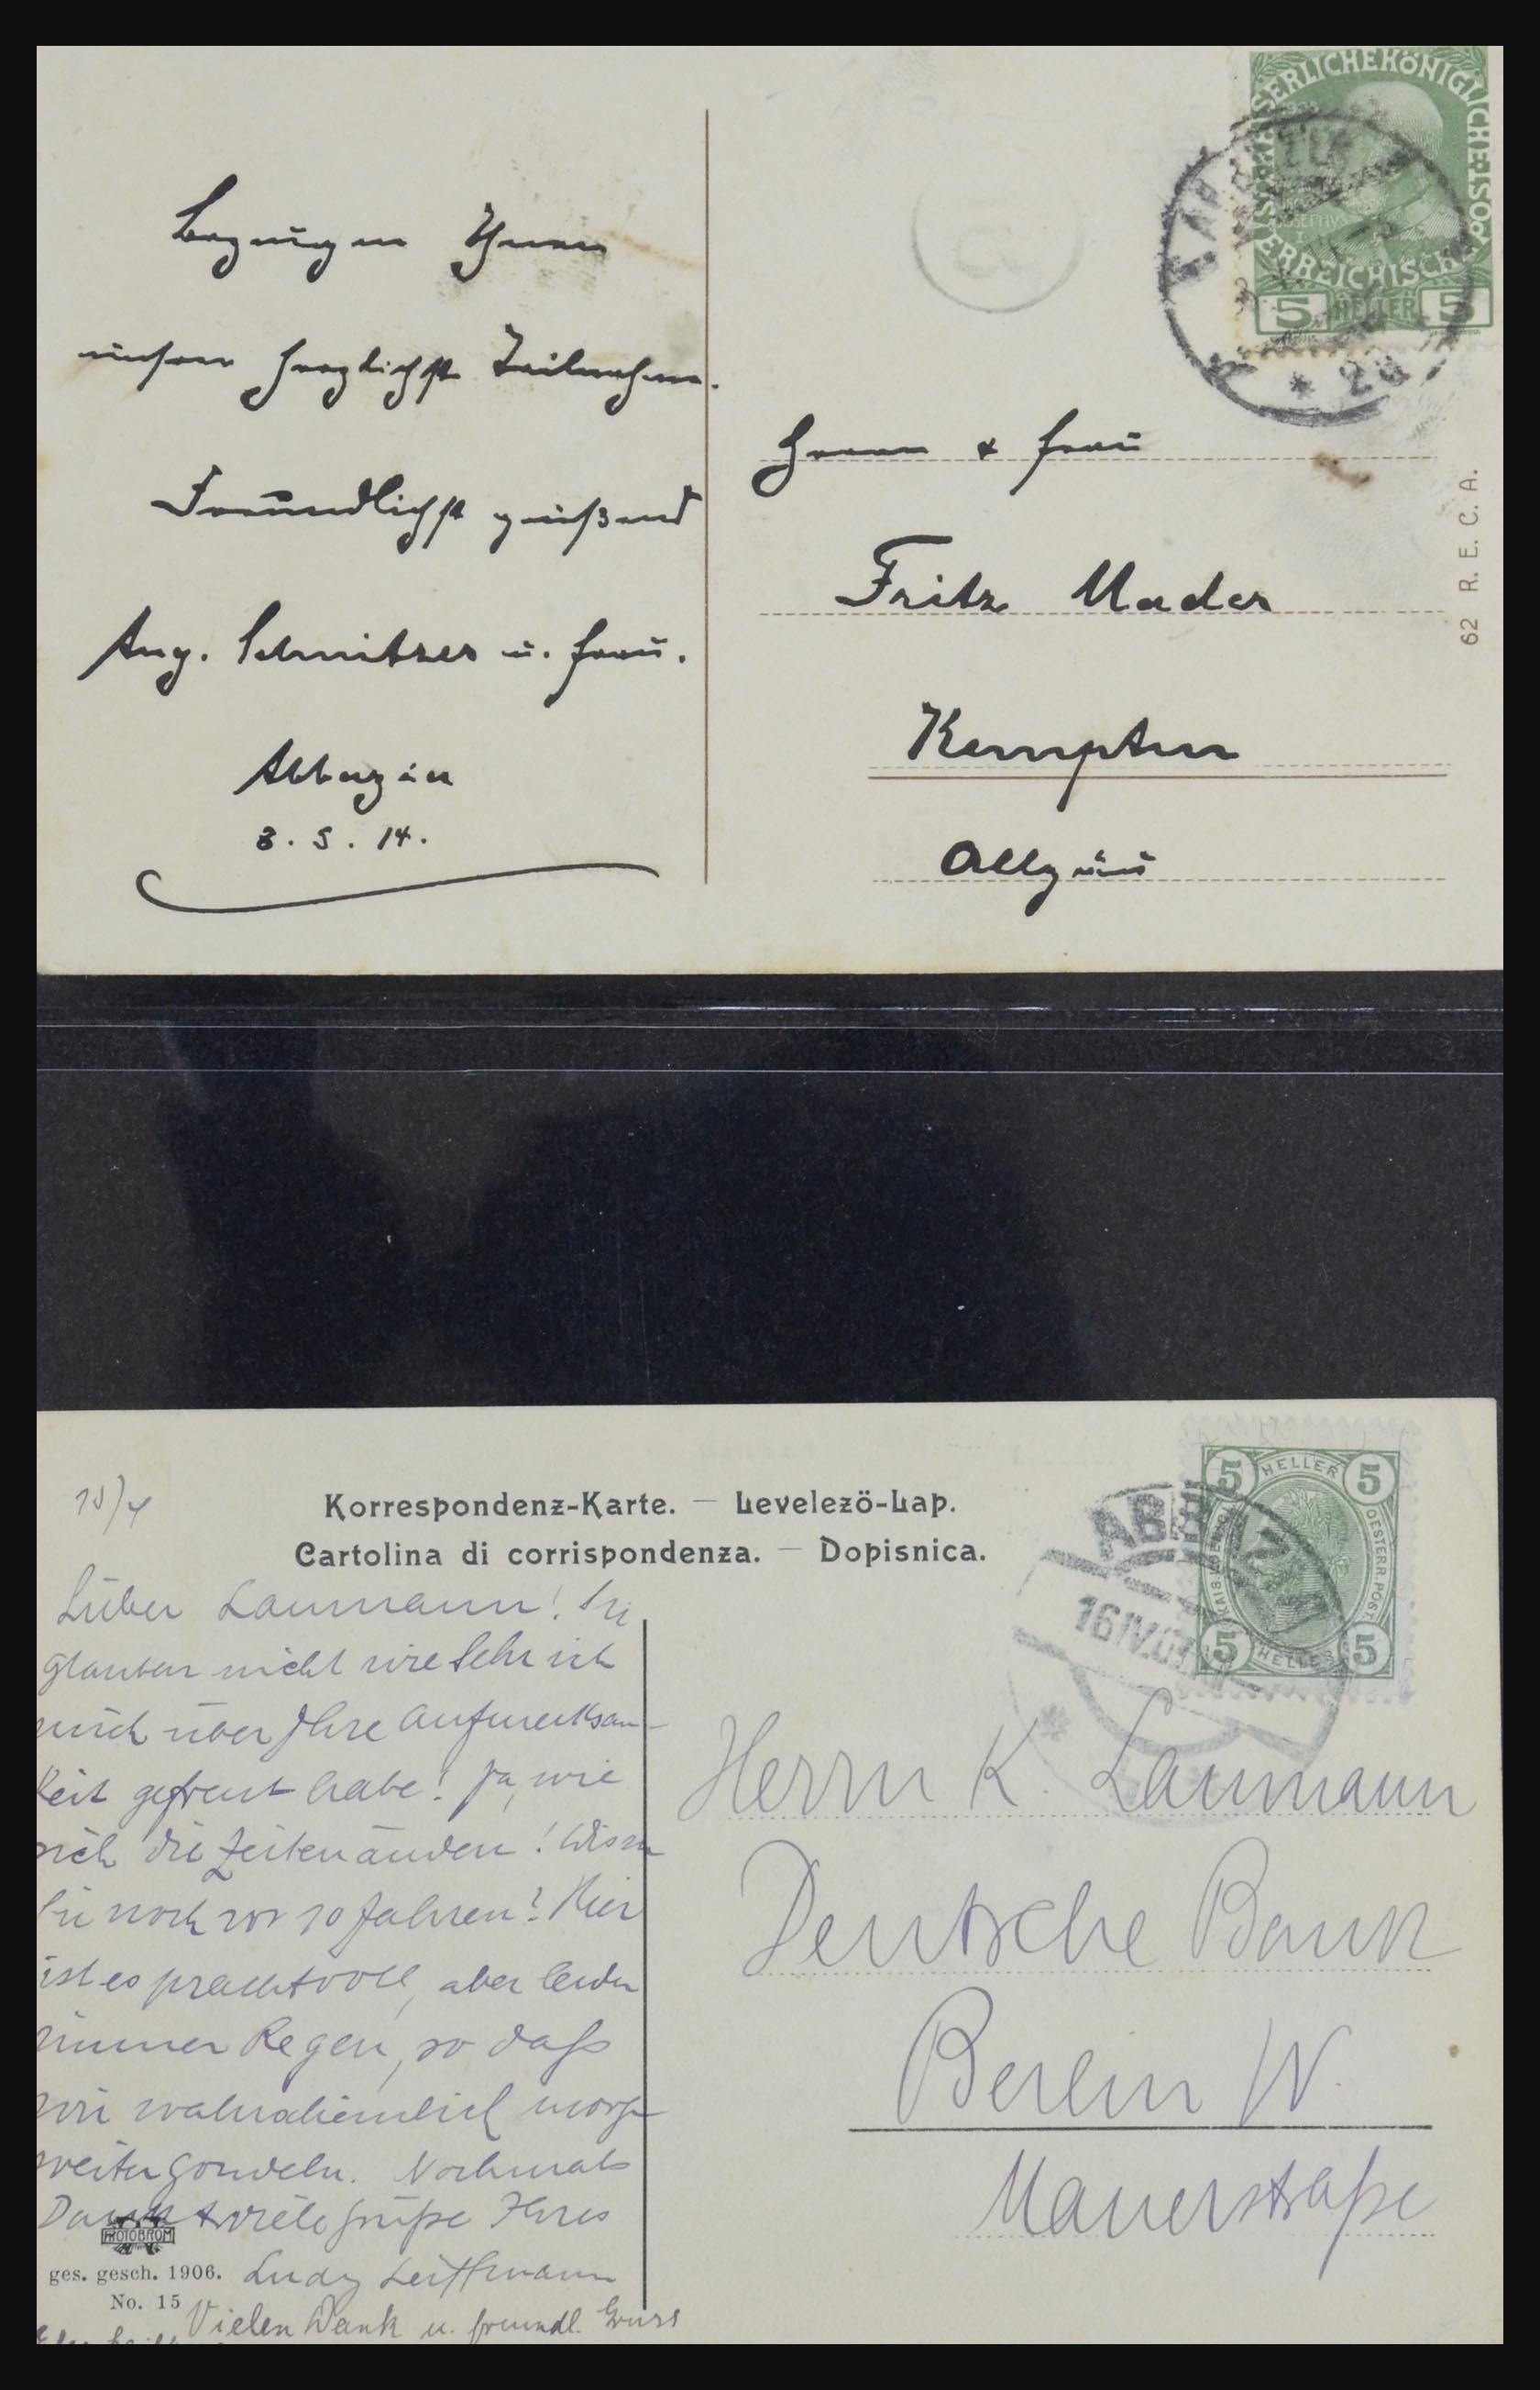 Bezeugen Ihnen
unsere herzlichste Teilnahme.
Freundlichst grüßend
Aug. Schnitzer u. Frau.
Abbazia
3. 5. 14.
KAISERLICHE KÖNIGLICHE POST
ÖSTERREICHISCHE
5 HELLER 5
* 2a
Herrn & Frau
Fritz Mader
Kempten
Allgäu
62 R. E. C. A.
Korrespondenz-Karte. — Levelezö-Lap.
Cartolina di corrispondenza. — Dopisnica.
5 HELLER 5
OESTERR. POST
5 HELLER 5
ABBAZIA
16 IV
Lieber Laumann! Sie
glauben nicht wie sehr ich
mich über Ihre Aufmerksam-
keit gefreut habe! Ja, wie
sich die Zeiten ändern! Wissen
Sie noch vor 10 Jahren? Hier
ist es prachtvoll, aber leider
immer Regen, so daß
wir wahrscheinlich morgen
weitergondeln. Nochmals
Dank & viele Grüße Ihres
PHOTOBROM
ges. gesch. 1906.
No. 15
Vielen Dank u. freundl. Gruss
Herrn K. Laumann
Deutsche Bank
Berlin W.
Mauerstraße